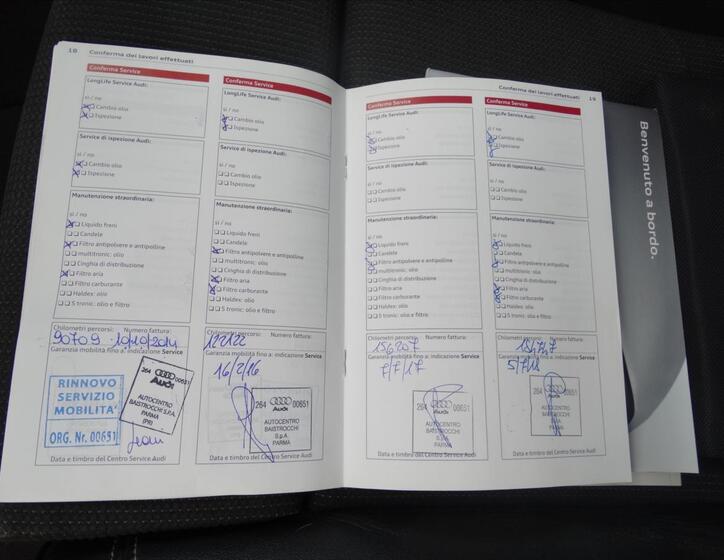 18 Conferma dei lavori effettuati
Conferma Service
LongLife Service Audi:
si / no
Cambio olio
Ispezione
Service di ispezione Audi:
Cambio olio
Ispezione
Manutenzione straordinaria:
si / no
Liquido freni
Candele
Filtro antipolvere e antipolline
multitronic: olio
Cinghia di distribuzione
Filtro aria
Filtro carburante
Haldex: olio
S tronic: olio e filtro
Chilometri percorsi: Numero fattura:
90709 10/10/2014
Garanzia mobilità fino a: indicazione Service
RINNOVO
SERVIZIO
MOBILITA'
ORG. Nr. 00651
264 00651
Audi
AUTOCENTRO
BAISTROCCHI S.P.A.
PARMA
(PR)
Data e timbro del Centro Service Audi
Conferma Service
LongLife Service Audi:
si / no
Cambio olio
Ispezione
Service di ispezione Audi:
Cambio olio
Ispezione
Manutenzione straordinaria:
si / no
Liquido freni
Candele
Filtro antipolvere e antipolline
multitronic: olio
Cinghia di distribuzione
Filtro aria
Filtro carburante
Haldex: olio
S tronic: olio e filtro
Chilometri percorsi: Numero fattura:
122122
Garanzia mobilità fino a: indicazione Service
16/2/16
264 00651
Audi
AUTOCENTRO
BAISTROCCHI
S.p.A.
PARMA
Data e timbro del Centro Service Audi
Conferma dei lavori effettuati 19
Conferma Service
LongLife Service Audi:
si / no
Cambio olio
Ispezione
Service di ispezione Audi:
Cambio olio
Ispezione
Manutenzione straordinaria:
si / no
Liquido freni
Candele
Filtro antipolvere e antipolline
multitronic: olio
Cinghia di distribuzione
Filtro aria
Filtro carburante
Haldex: olio
S tronic: olio e filtro
Chilometri percorsi: Numero fattura:
156207
Garanzia mobilità fino a: indicazione Service
7/7/17
264 00651
Audi
AUTOCENTRO
BAISTROCCHI
S.p.A.
PARMA
Data e timbro del Centro Service Audi
Conferma Service
LongLife Service Audi:
si / no
Cambio olio
Ispezione
Service di ispezione Audi:
Cambio olio
Ispezione
Manutenzione straordinaria:
si / no
Liquido freni
Candele
Filtro antipolvere e antipolline
multitronic: olio
Cinghia di distribuzione
Filtro aria
Filtro carburante
Haldex: olio
S tronic: olio e filtro
Chilometri percorsi: Numero fattura:
Garanzia mobilità fino a: indicazione Service
264 00651
Audi
AUTOCENTRO
BAISTROCCHI
S.p.A.
PARMA
Data e timbro del Centro Service Audi
Benvenuto a bordo.